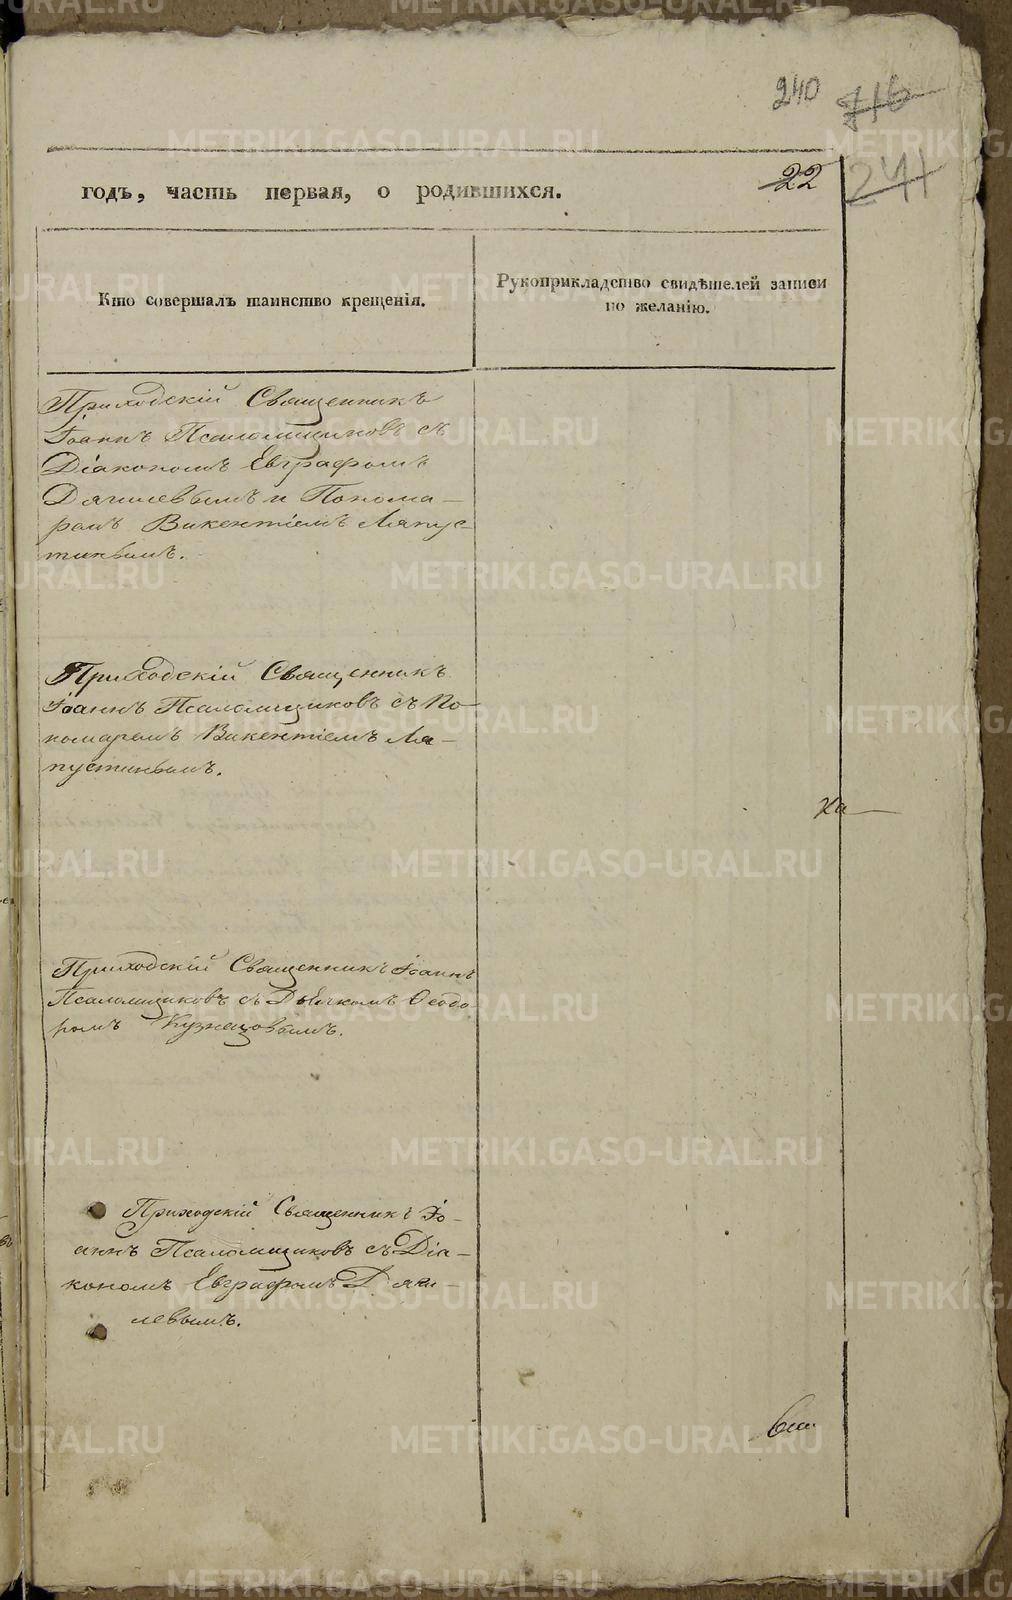 240 716
годъ, часть первая, о родившихся. 22 241
Кто совершалъ таинство крещенія.
Рукоприкладство свидѣтелей записи
по желанію.
Приходскій Священникъ
Іоаннъ Псаломщиковъ съ
Діакономъ Евграфомъ
Дягилевымъ и Понома-
ремъ Викентіемъ Ляпус-
тинымъ.
Приходскій Священникъ
Іоаннъ Псаломщиковъ съ По
номаремъ Викентіемъ Ля-
пустинымъ.
Приходскій Священникъ Іоаннъ
Псаломщиковъ съ Дьячкомъ Ѳеодо
ромъ Кузнецовымъ.
Приходскій Священникъ Іо-
аннъ Псаломщиковъ съ Діа-
кономъ Евграфомъ Дяги-
левымъ.
METRIKI.GASO-URAL.RU